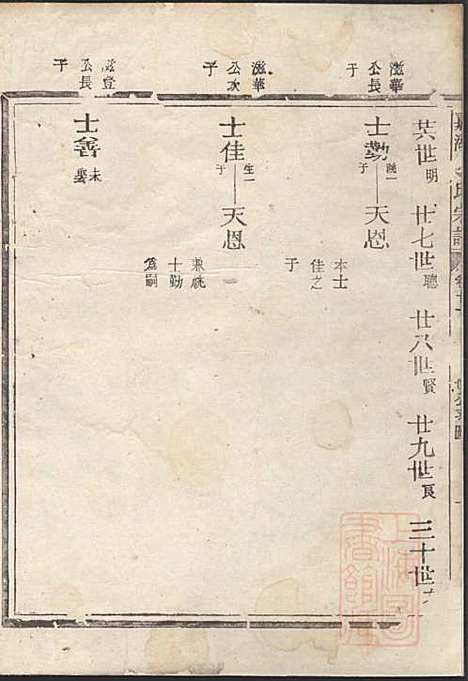 氏宗譜
卷十一
廿六世明 廿七世聰 廿八世賢 廿九世良 三十世
滋華公長子
士勤
繼一子
天恩
本士佳之子
滋華公次子
士佳
生一子
天恩
兼祧士勤爲嗣
滋登公長子
士善
未娶
上海圖書館藏